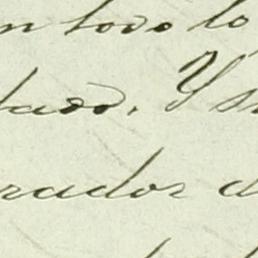 n todo lo
tado. Y s
rador d